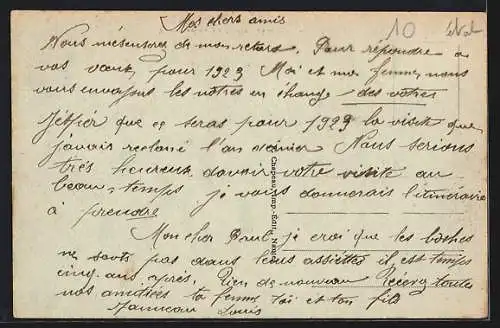 Mes chers amis
10
Nous m'excuserez de mon retard. Pour répondre a
vos vœux pour 1929 Moi et ma femme, nous
vous envoyons les nôtres en échange des vôtres
J'éspèr que ce seras pour 1929 la visite que
j'avais reclamé l'an dernier Nous serions
très heureux davoir votre visite au
beau-temps je vous donnerais l'itinéraire
à prendre
Mon cher Paul je crois que les boches
ne sont pas dans leurs assiettes il est temps
cinq ans après. Rien de nouveau Recevez toutes
nos amitiées ta femme toi et ton fils
Louis
Chapeau, Imp.-Édit., Nantes